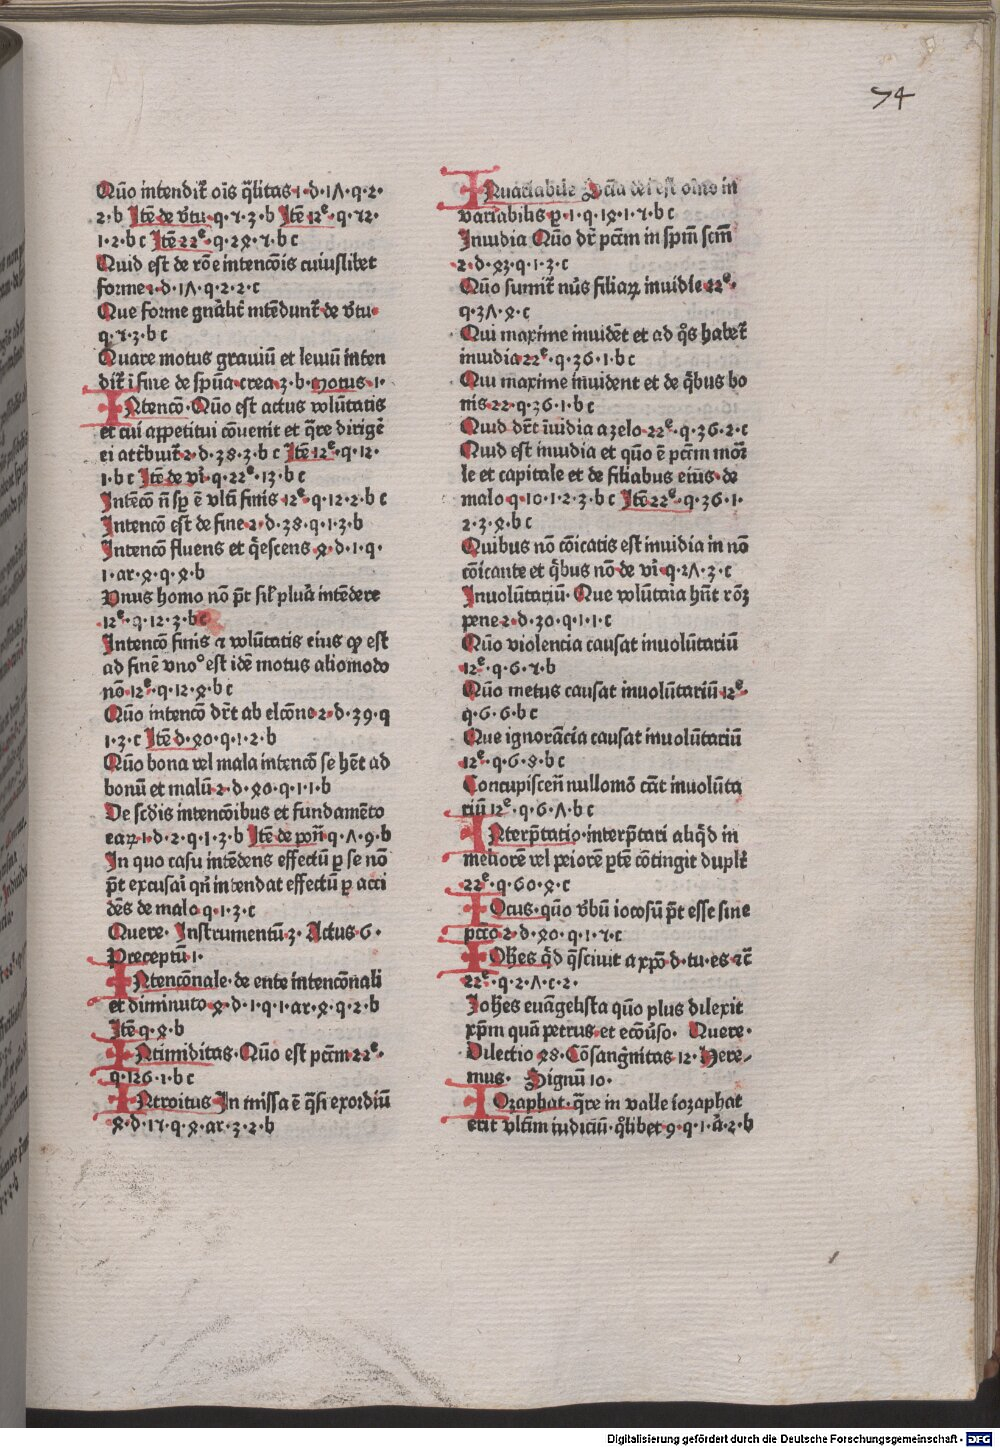 74
Quō intendit᷑ oīs q̄litas·1·d·17·q·2·
2·b Itē de v̄tu·q·7·3·b Itē 12ͤ·q·72·
1·2·b c Itē 22ͤ·q·24·7·b c
Quid est de rōe intencōis cuiuslibet
forme 1·d·17·q·2·2·c
Que forme gn̄alit᷑ intēdunt᷑ de v̄tu·
q·7·3·b c
Quare motus grauiū et leuiū inten
dit᷑ ī fine de spūa crea·3·b·motus·1·
INtencō·Quō est actus volūtatis
et cui appetitui cōuenit et q̄re dirigē
ei att̄buit᷑ 2·d·38·3·b c Itē 12ͤ·q·12·
1·b c Itē de vi·q·22ͤ·13·b c
Intēcō n̄ sp̄ ē vltī finis 12ͤ·q·12·2·b c
Intencō est de fine 2·d·38·q·1·3·b
Intencō fluens et q̄escens 4·d·1·q·
1·ar·4·q·4·b
Vnus homo nō pt̄ sil᷑ plura intēdere
12ͤ·q·12·3·b c
Intencō finis ⁊ volūtatis eius qͥ est
ad finē vno° est idē motus aliomodo
nō 12ͤ·q·12·4·b c
Quō intencō drt̄ ab elcōne 2·d·39·q
1·3·c Itē d·40·q·1·2·b
Quō bona vel mala intencō se hēt ad
bonū et malū 2·d·40·q·1·1·b
De scdis intencōibus et fundamēto
eaꝝ 1·d·2·q·1·3·b Itē de poīi q·7·9·b
In quo casu intēdens effectū p se nō
pt̄ excusari qn̄ intendat effectū p acci
dēs de malo q·1·3·c
Quere·Instrumentū 3·Actus 6·
Preceptū 1·
INtencōnale·de ente intencōnali
et diminuto 4·d·1·q·1·ar·4·q·2·b
Itē q·4·b
INtimiditas·Quō est pctm̄ 22ͤ·
q·126·1·b c
INtroitus In missa ē q̄si exordiū
4·d·17·q·4·ar·3·2·b
INuariabile Scīa dei est oīno in
variabilis p·1·q·14·1·7·b c
Inuidia Quō dr̄ pctm̄ in spm̄ scm̄
2·d·43·q·1·3·c
Quō sumit᷑ nūs filiaꝝ inuidie 22ͤ·
q·37·4·c
Qui maxime inuidēt et ad qͦs habet᷑
inuidia 22ͤ·q·36·1·b c
Qui maxime inuident et de q̄bus bo
nis 22·q·36·1·b c
Quō drt̄ īuidia a zelo 22ͤ·q·36·2·c
Quid est inuidia et quō ē pctm̄ mor̄
le et capitale et de filiabus eius de
malo q·10·1·2·3·b c Itē 22ͤ·q·36·1·
2·3·4·b c
Quibus nō cōicatis est inuidia in nō
cōicante et q̄bus nō de vi·q·27·3·c
Inuolūtariū·Que volūtaria hn̄t rōꝫ
pene 2·d·30·q·1·1·c
Quō violencia causat inuolūtariū
12ͤ·q·6·7·b
Quō metus causat inuolūtariū 12ͤ·
q·6·6·b c
Que ignorācia causat inuolūtariū
12ͤ·q·6·8·b c
Concupiscen̄ nullomō cāt inuolūta
riū 12ͤ·q·6·7·b c
INterp̄tatio·interp̄tari aliq̄d in
meliorē vel peiorē ptē cōtingit duplr̄
22ͤ·q·60·4·c
IOcus·quō v̄bū iocosū pt̄ esse sine
pctō 2·d·40·q·1·7·c
IOhēs q̄d q̄siuit a xpō d·tu es ⁊c̄
22ͤ·q·2·7·c·2·
Iohēs euāgelista quō plus dilexit
xpm̄ quā petrus et ecōu̇so· Quere·
Dilectio 48·Cōsang̈nitas 12·Here-
mus· Signū 10·
IOzaphat·q̄re in valle iozaphat
erit vltīm iudiciū·qͦlibet 9·q·1·a·2·b
Digitalisierung gefördert durch die Deutsche Forschungsgemeinschaft - DFG